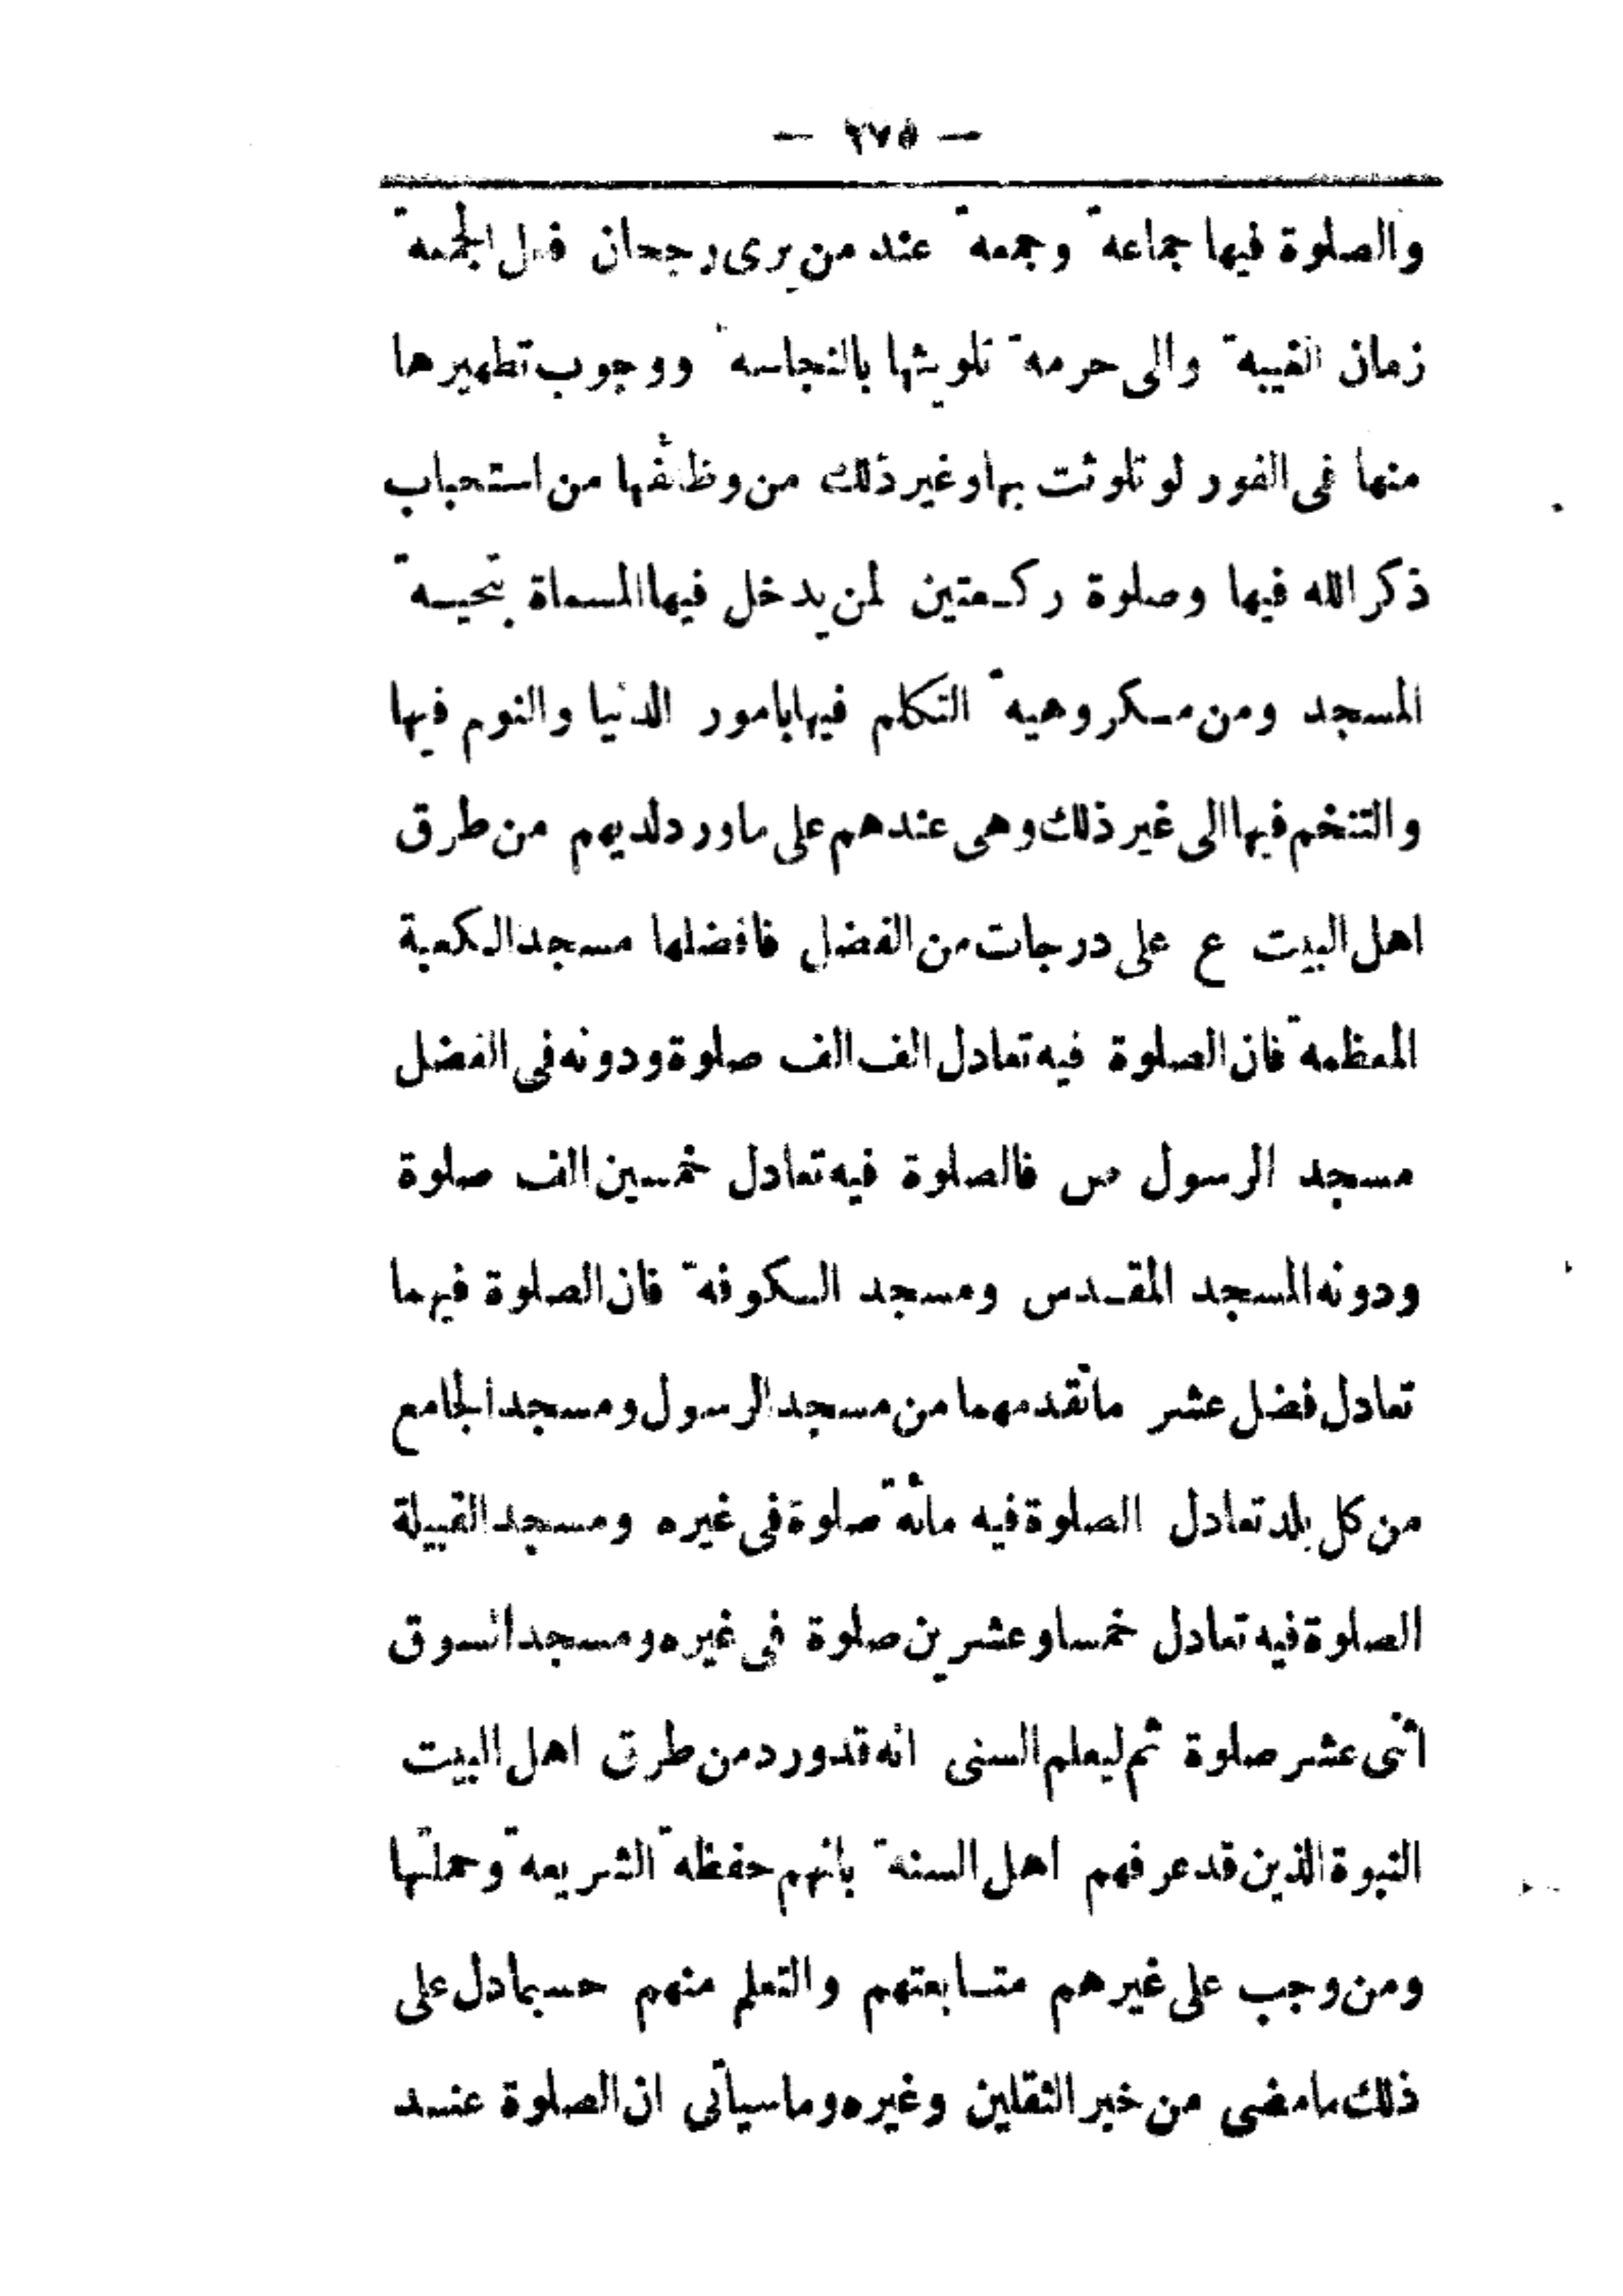 — ٢٧٥ —
والصلوة فيها جماعة وجمعة عند من يرى رجحان فعل الجمعة
زمان الغيبة والى حرمة تلويثها بالنجاسة ووجوب تطهيرها
منها فى الفور لو تلوثت بها وغير ذلك من وظائفها من استحباب
ذكر الله فيها وصلوة ركعتين لمن يدخل فيها المسماة بتحية
المسجد ومن مكروهية التكلم فيها بامور الدنيا والنوم فيها
والتنخم فيها الى غير ذلك وهى عندهم على ماورد لديهم من طرق
اهل البيت ع على درجات من الفضل فافضلها مسجد الكعبة
المعظمة فان الصلوة فيه تعادل الف الف صلوة ودونه فى الفضل
مسجد الرسول ص فالصلوة فيه تعادل خمسين الف صلوة
ودونه المسجد المقدس ومسجد الكوفة فان الصلوة فيهما
تعادل فضل عشر ماتقدمهما من مسجد الرسول ومسجد الجامع
من كل بلد تعادل الصلوة فيه مائة صلوة فى غيره ومسجد القبيلة
الصلوة فيه تعادل خمسا وعشرين صلوة فى غيره ومسجد السوق
اثنى عشر صلوة ثم ليعلم السنى انه قدورد من طرق اهل البيت
النبوة الذين قد عرفهم اهل السنة بانهم حفظة الشريعة وحملتها
ومن وجب على غيرهم متابعتهم والتعلم منهم حسبما دل على
ذلك مامضى من خبر الثقلين وغيره وماسيأتى ان الصلوة عند